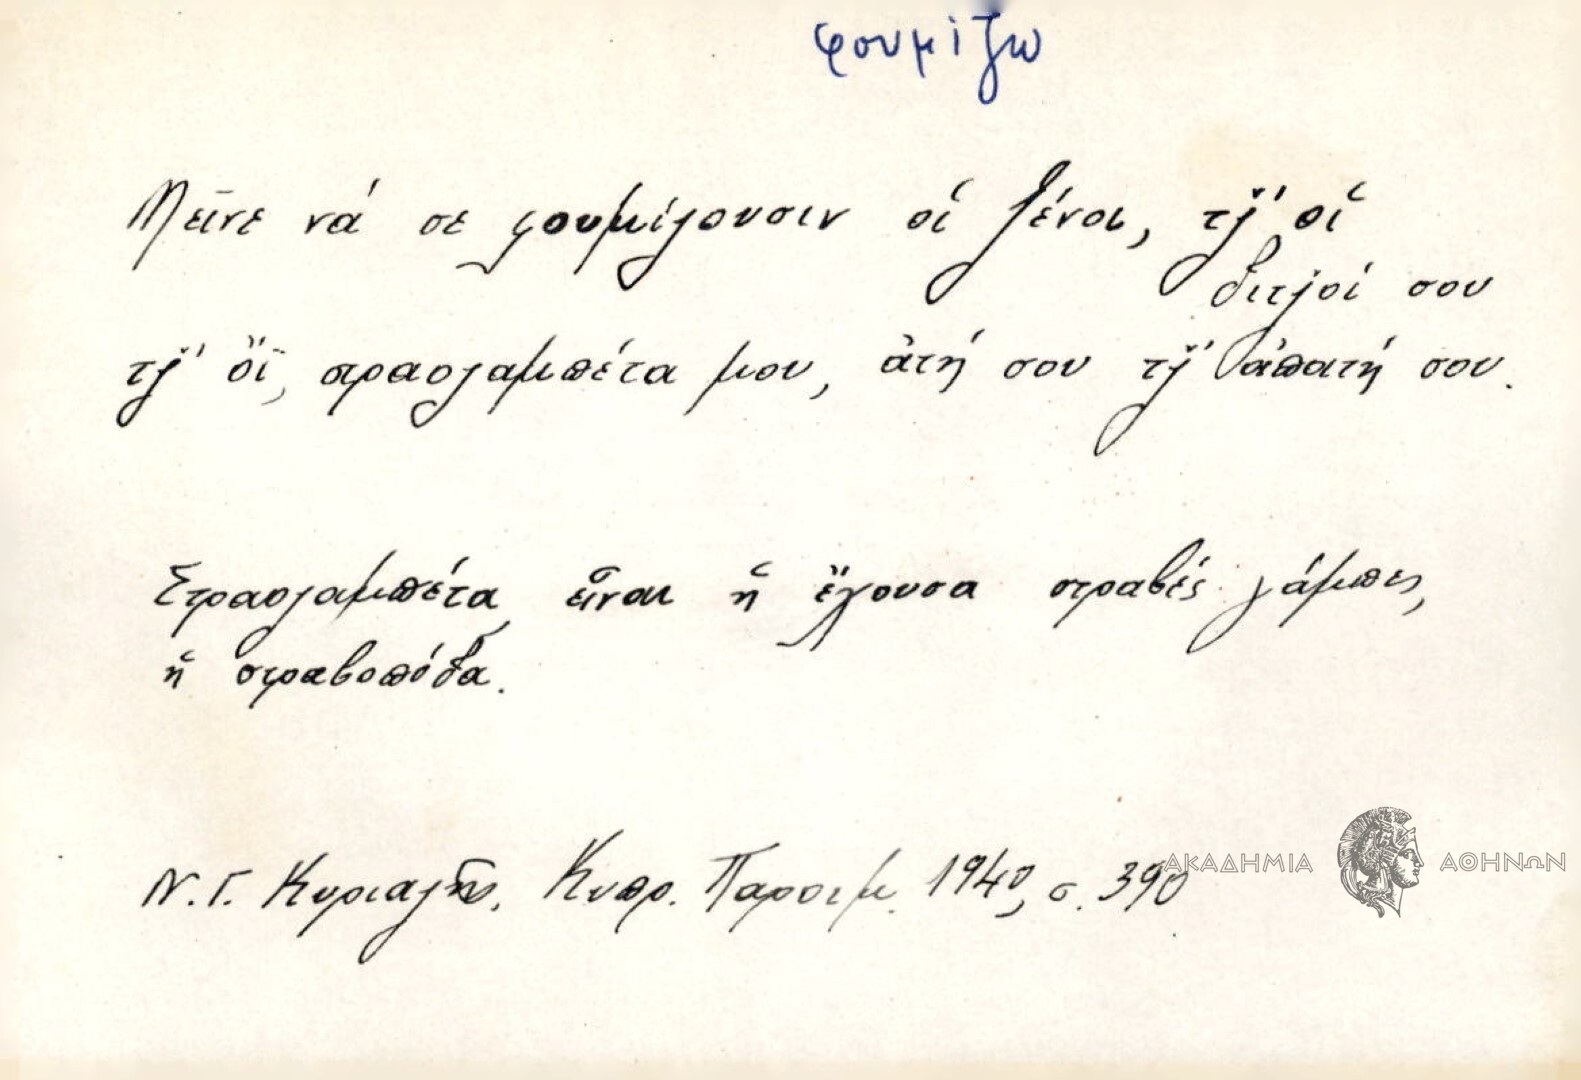 φουμίζω
Μεῖνε νά σε φουμίζουσιν οἱ ξένοι, τζ̌' οἱ
διτζ̌οί σου
τζ̌' ὄϊ, στραολαμπέτα μου, ἀτή σου τζ̌' ἀπατή σου.
Στραολαμπέτα εἶναι ἡ ἔχουσα στραβές λάμπες,
ἡ στραβοπόδα.
Ν. Γ. Κυριαζῆς, Κυπρ. Παροιμ. 1940, σ. 390
ΑΚΑΔΗΜΙΑ ΑΘΗΝΩΝ